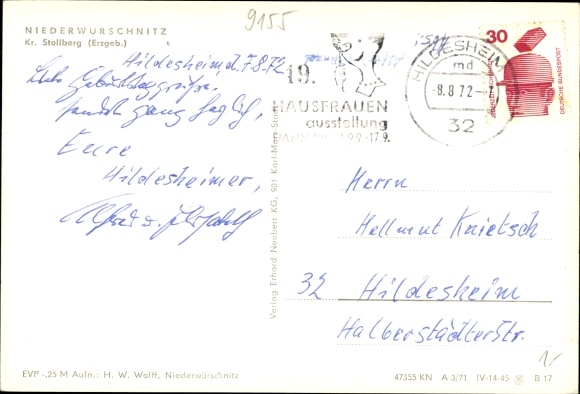 9155
NIEDERWÜRSCHNITZ
Kr. Stollberg (Erzgeb.)
Hildesheim, d. 7.8.72
Liebe Geburtstagsgrüße,
ganz
Eure
Hildesheimer,
19.
HAUSFRAUEN
ausstellung
9.9.-17.9.
HILDESHEIM
md
-8.8.72-
32
30
DEUTSCHE BUNDESPOST
Herrn
Hellmut Knietsch
32 Hildesheim
Halberstädterstr.
1/-
Verlag Erhard Neubert KG, 901 Karl-Marx-Stadt
EVP -,25 M Aufn.: H. W. Wolff, Niederwürschnitz
47355 KN A 3/71 IV-14-45 B 17